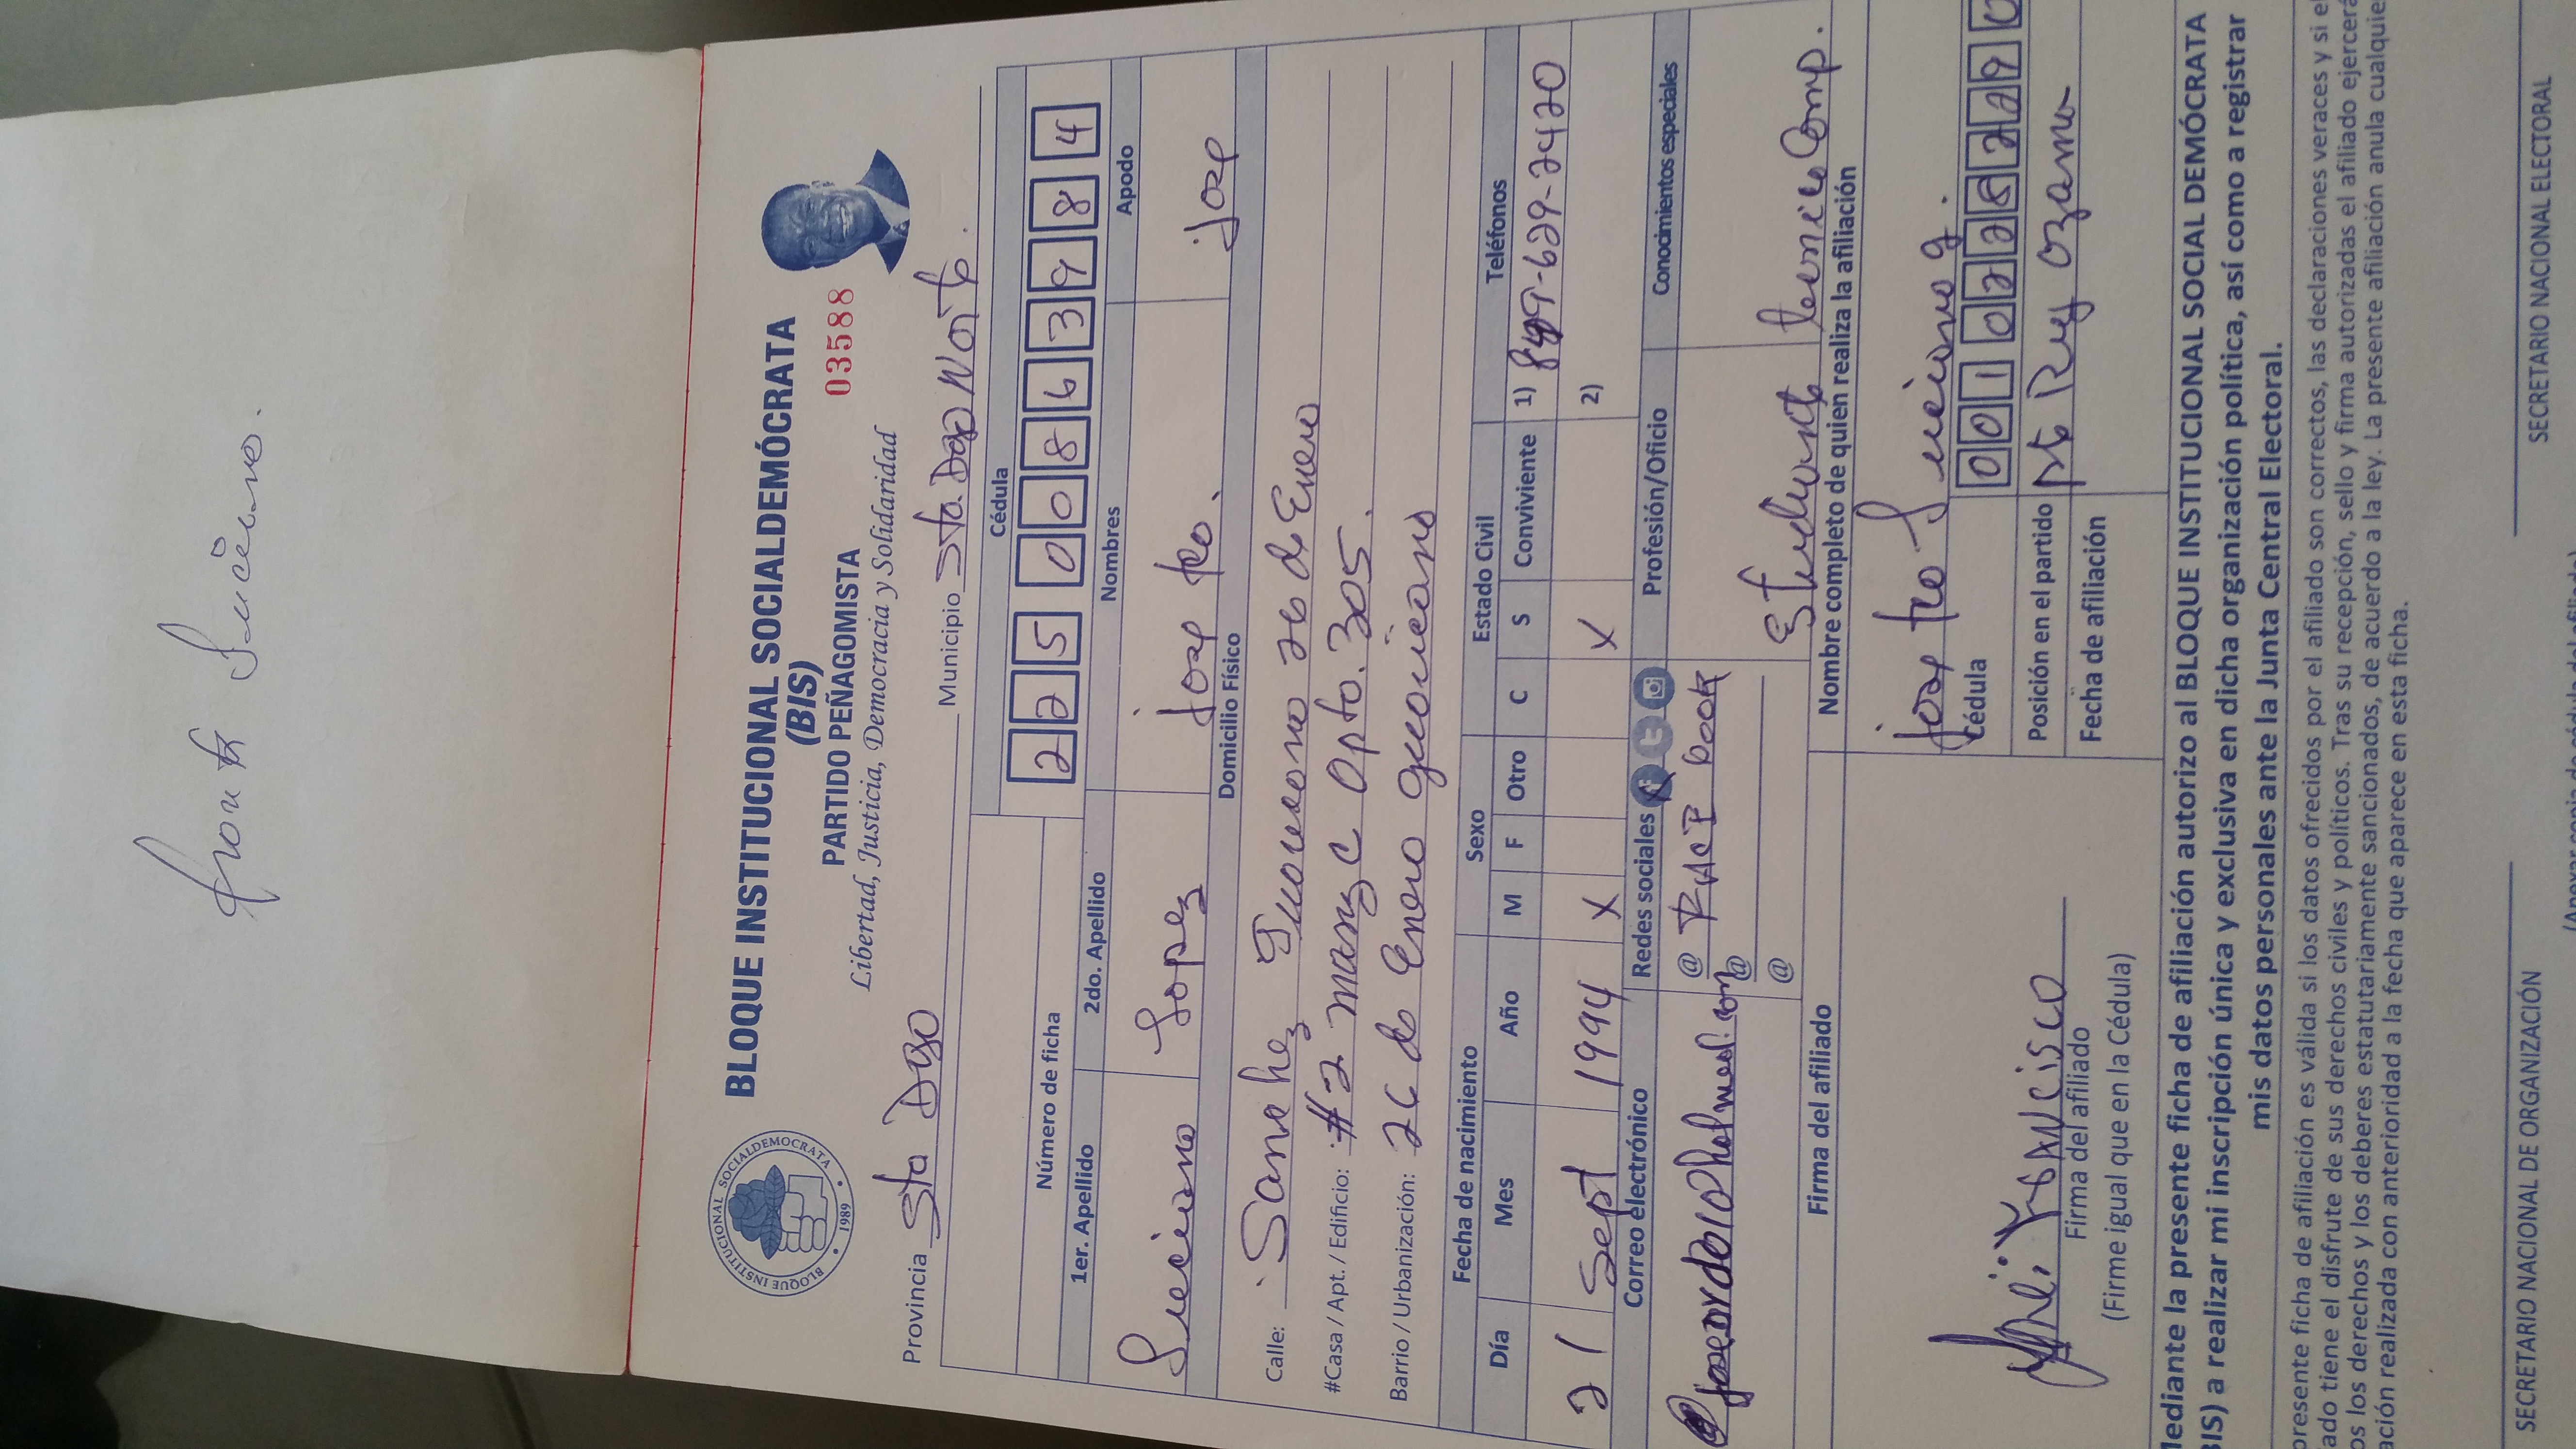 Luciano.
BLOQUE INSTITUCIONAL SOCIALDEMÓCRATA
(BIS)
PARTIDO PEÑAGOMISTA 03588
Libertad, Justicia, Democracia y Solidaridad
BLOQUE INSTITUCIONAL SOCIALDEMOCRATA 1989
Provincia Sto Dgo Municipio Sto. Dgo Norte.
Número de ficha Cédula
2 2 5 0 0 8 6 3 9 8 4
1er. Apellido 2do. Apellido Nombres Apodo
Luciano Lopez Jose fco. Jose
Domicilio Físico
Calle: Sanchez 26 de Enero
#Casa / Apt. / Edificio: #2 Manz C Apto. 305.
Barrio / Urbanización: 26 de Enero
Fecha de nacimiento Sexo Estado Civil Teléfonos
Día Mes Año M F Otro C S Conviviente 1) 629-2420
21 Sept 1994 X X 2)
Correo electrónico Redes sociales Profesión/Oficio Conocimientos especiales
@ FACE BOOK
@
@
Estudiante Tecnico Comp.
Firma del afiliado Nombre completo de quien realiza la afiliación
Jose fco Luciano
Cédula 0 0 1 0 2 2 8 2 2 9 0
Posición en el partido
Fecha de afiliación
Firma del afiliado
(Firme igual que en la Cédula)
Mediante la presente ficha de afiliación autorizo al BLOQUE INSTITUCIONAL SOCIAL DEMÓCRATA
BIS) a realizar mi inscripción única y exclusiva en dicha organización política, así como a registrar
mis datos personales ante la Junta Central Electoral.
presente ficha de afiliación es válida si los datos ofrecidos por el afiliado son correctos, las declaraciones veraces y si el
ado tiene el disfrute de sus derechos civiles y políticos. Tras su recepción, sello y firma autorizadas el afiliado ejercerá
os los derechos y los deberes estatutariamente sancionados, de acuerdo a la ley. La presente afiliación anula cualquie
ación realizada con anterioridad a la fecha que aparece en esta ficha.
SECRETARIO NACIONAL DE ORGANIZACIÓN SECRETARIO NACIONAL ELECTORAL